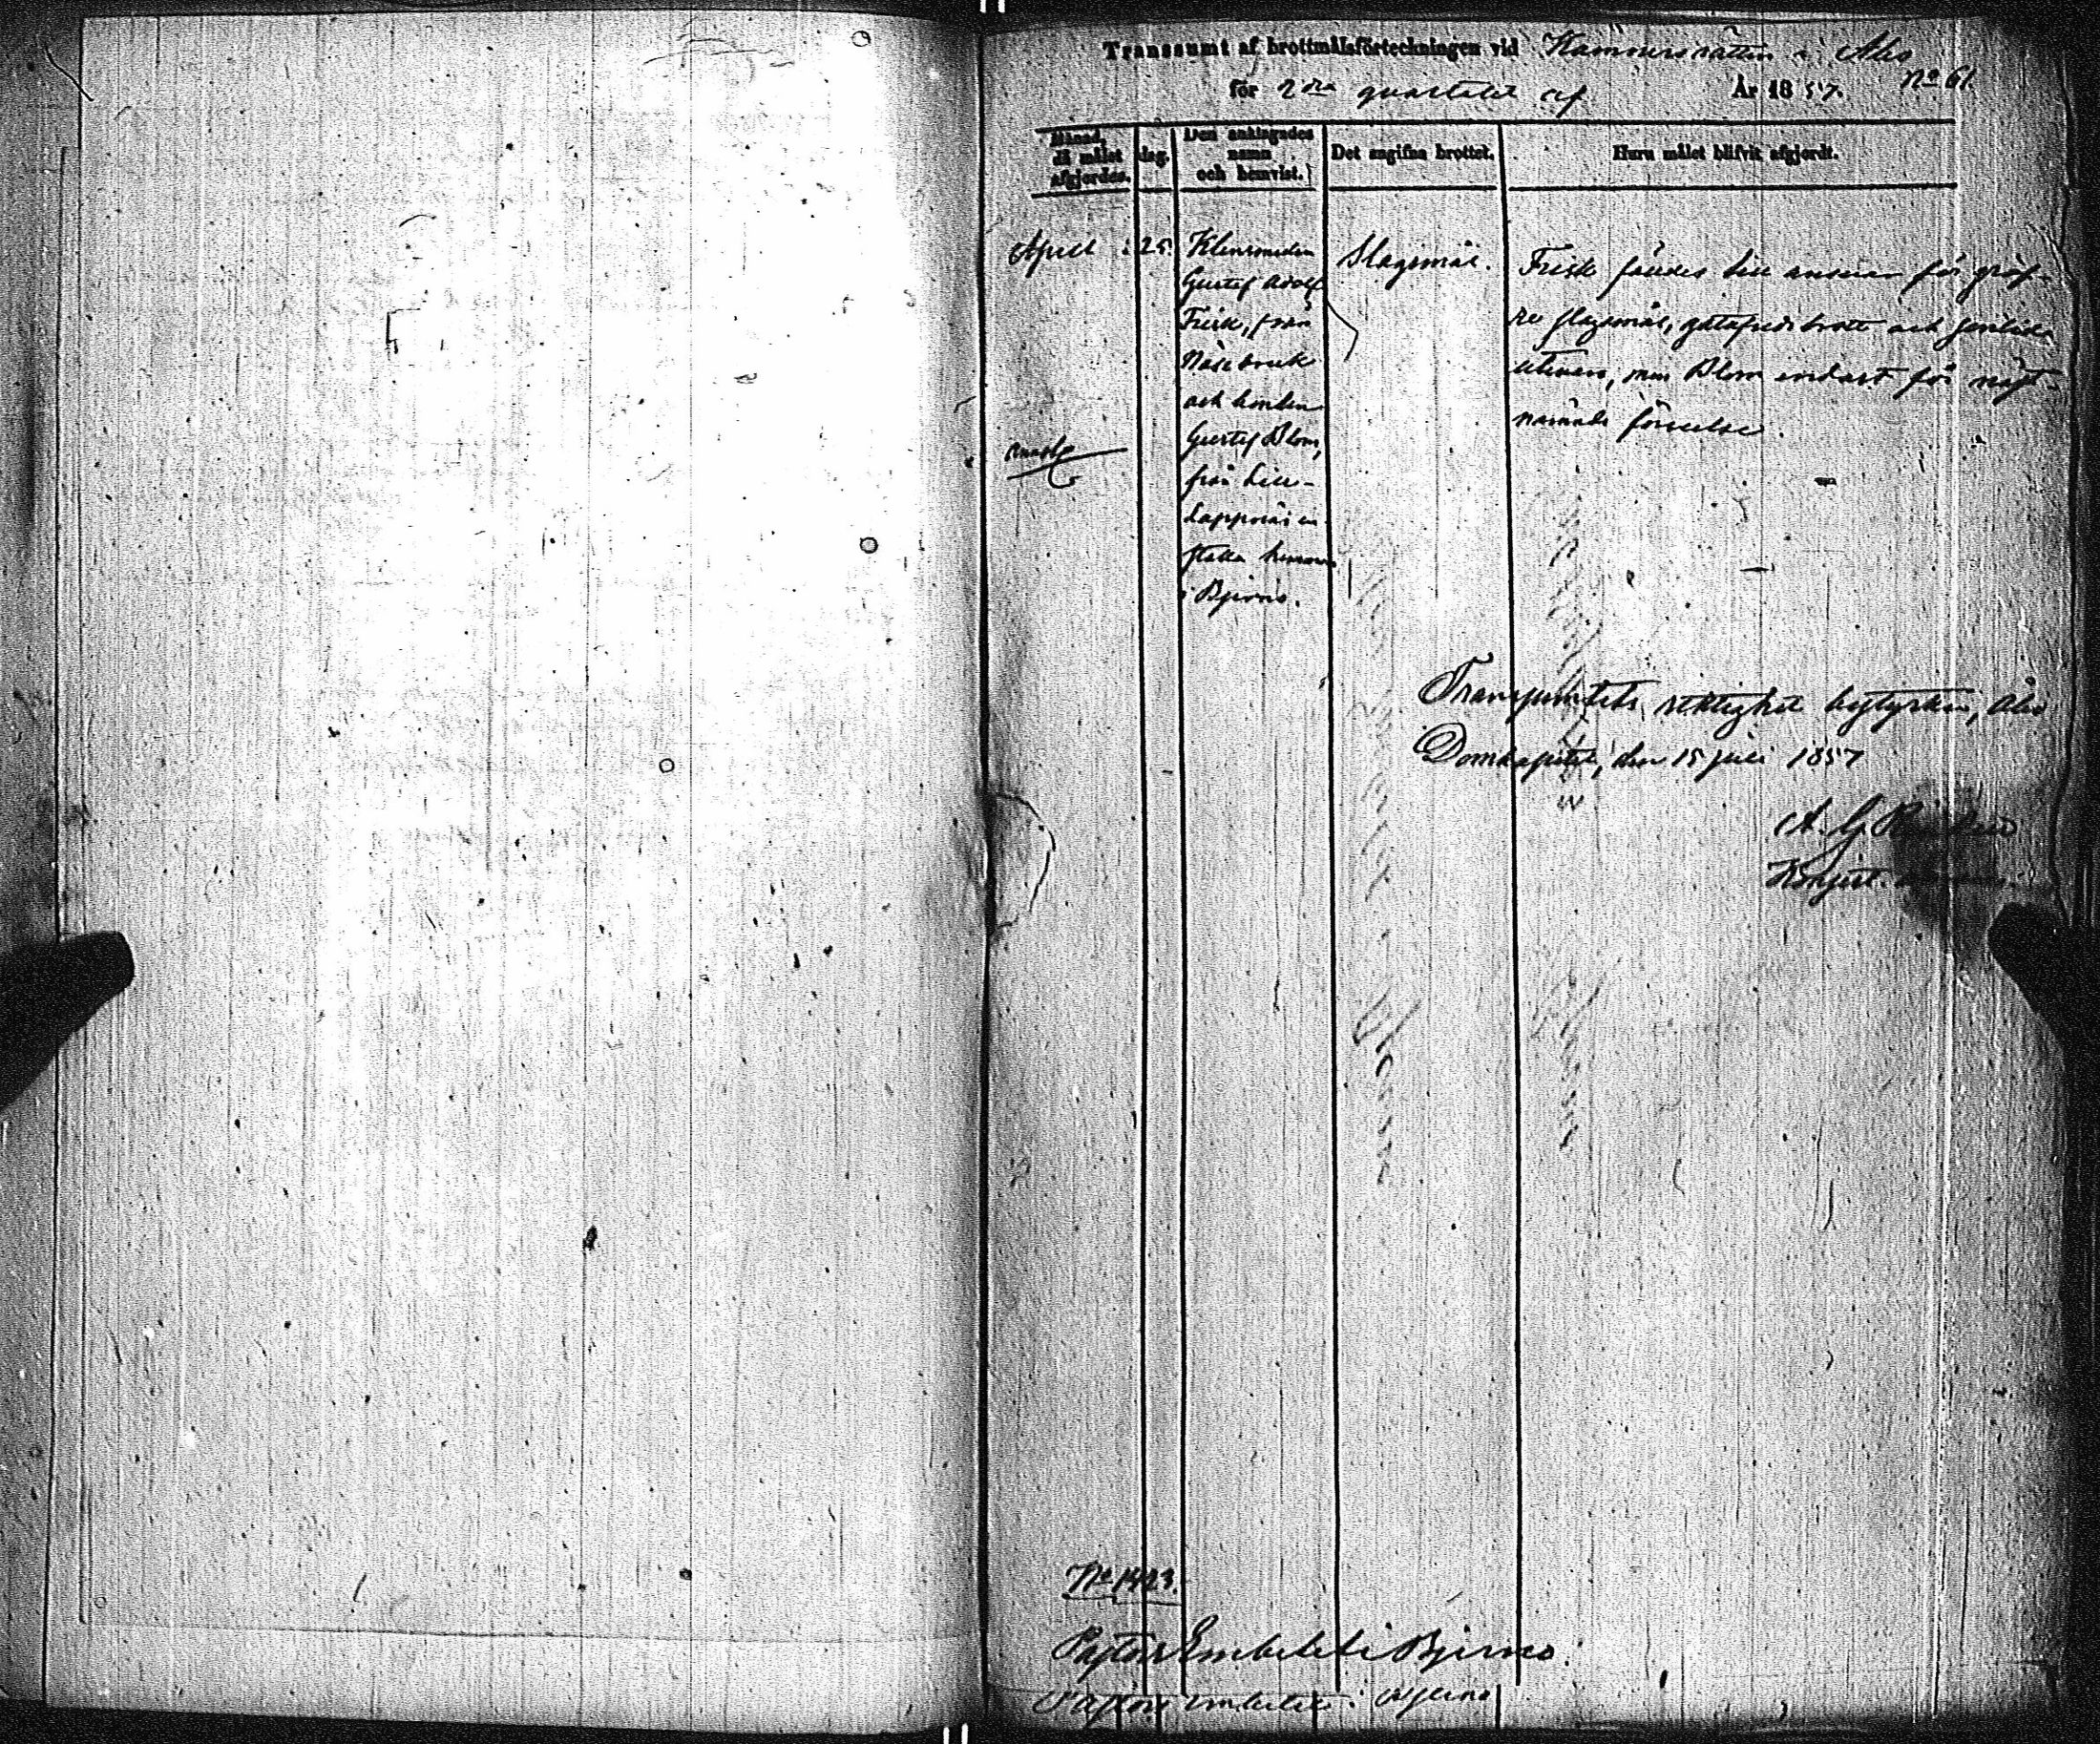 Transsumt af brottmålsförteckningen vid Kämnersrätten i Åbo
No 61.
för 2dra quartalet af År 1857.
Månad, då målet afgjordes.
dag.
Den anklagades namn och hemvist.
Det angifna brottet.
Huru målet blifvit afgjordt.
April 25.
Klensmeden
Gustef Adolf
Frisk, från
Näse bruk
och bonden
Gustef Blom,
från Lill-
Lappnäs
hemman
i Bjerno.
Slagsmål.
Frisk fälldes till ansvar för gröf-
re slagsmål, gatufridsbrott och
men Blom endast för
nämnde förseelse.
Transsumtets riktighet bestyrker, Åbo
Domkapitel, den 15 juli 1857
A. G.
Konsist.
No 1423.
Pastors Embetet i Bjerno.
Pastors Embetet i Bjerno